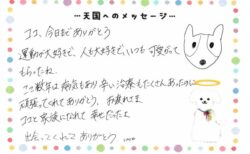 …天国へのメッセージ…
ココ、今日までありがとう
運動が大好きで、人も大好きで、いつも可愛がって
もらったね。
ここ数年は病気もあり辛い治療もたくさんあったのに
頑張ってくれてありがとう。お疲れさま。
ココと家族になれて幸せだったよ
出会ってくれてありがとう